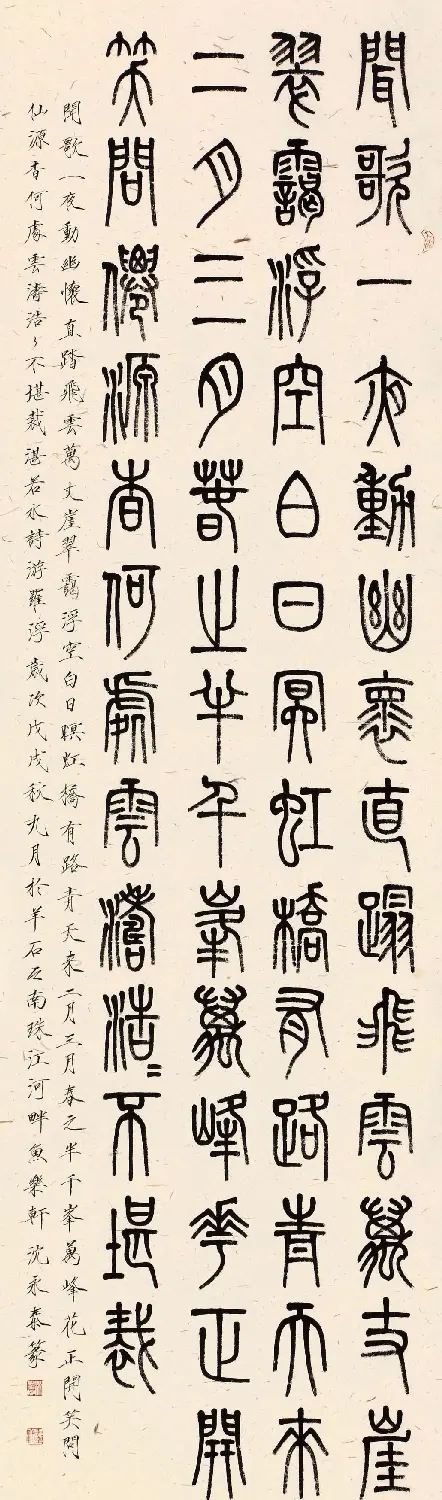 聞歌一夜動幽褱直蹋飛雲萬丈崖
翠靄浮空白日冥虹橋有路青天來
二月三月春之半千峯萬峰花正開
笑問僊源杳何處雲濤浩〻不堪裁
聞歌一夜動幽懷直踏飛雲萬丈崖翠靄浮空白日暝虹橋有路青天來二月三月春之半千峯萬峰花正開笑問
仙源杳何處雲濤浩〻不堪裁湛若水詩游羅浮歲次戊戌秋九月於羊石之南珠江河畔魚樂軒沈永泰篆